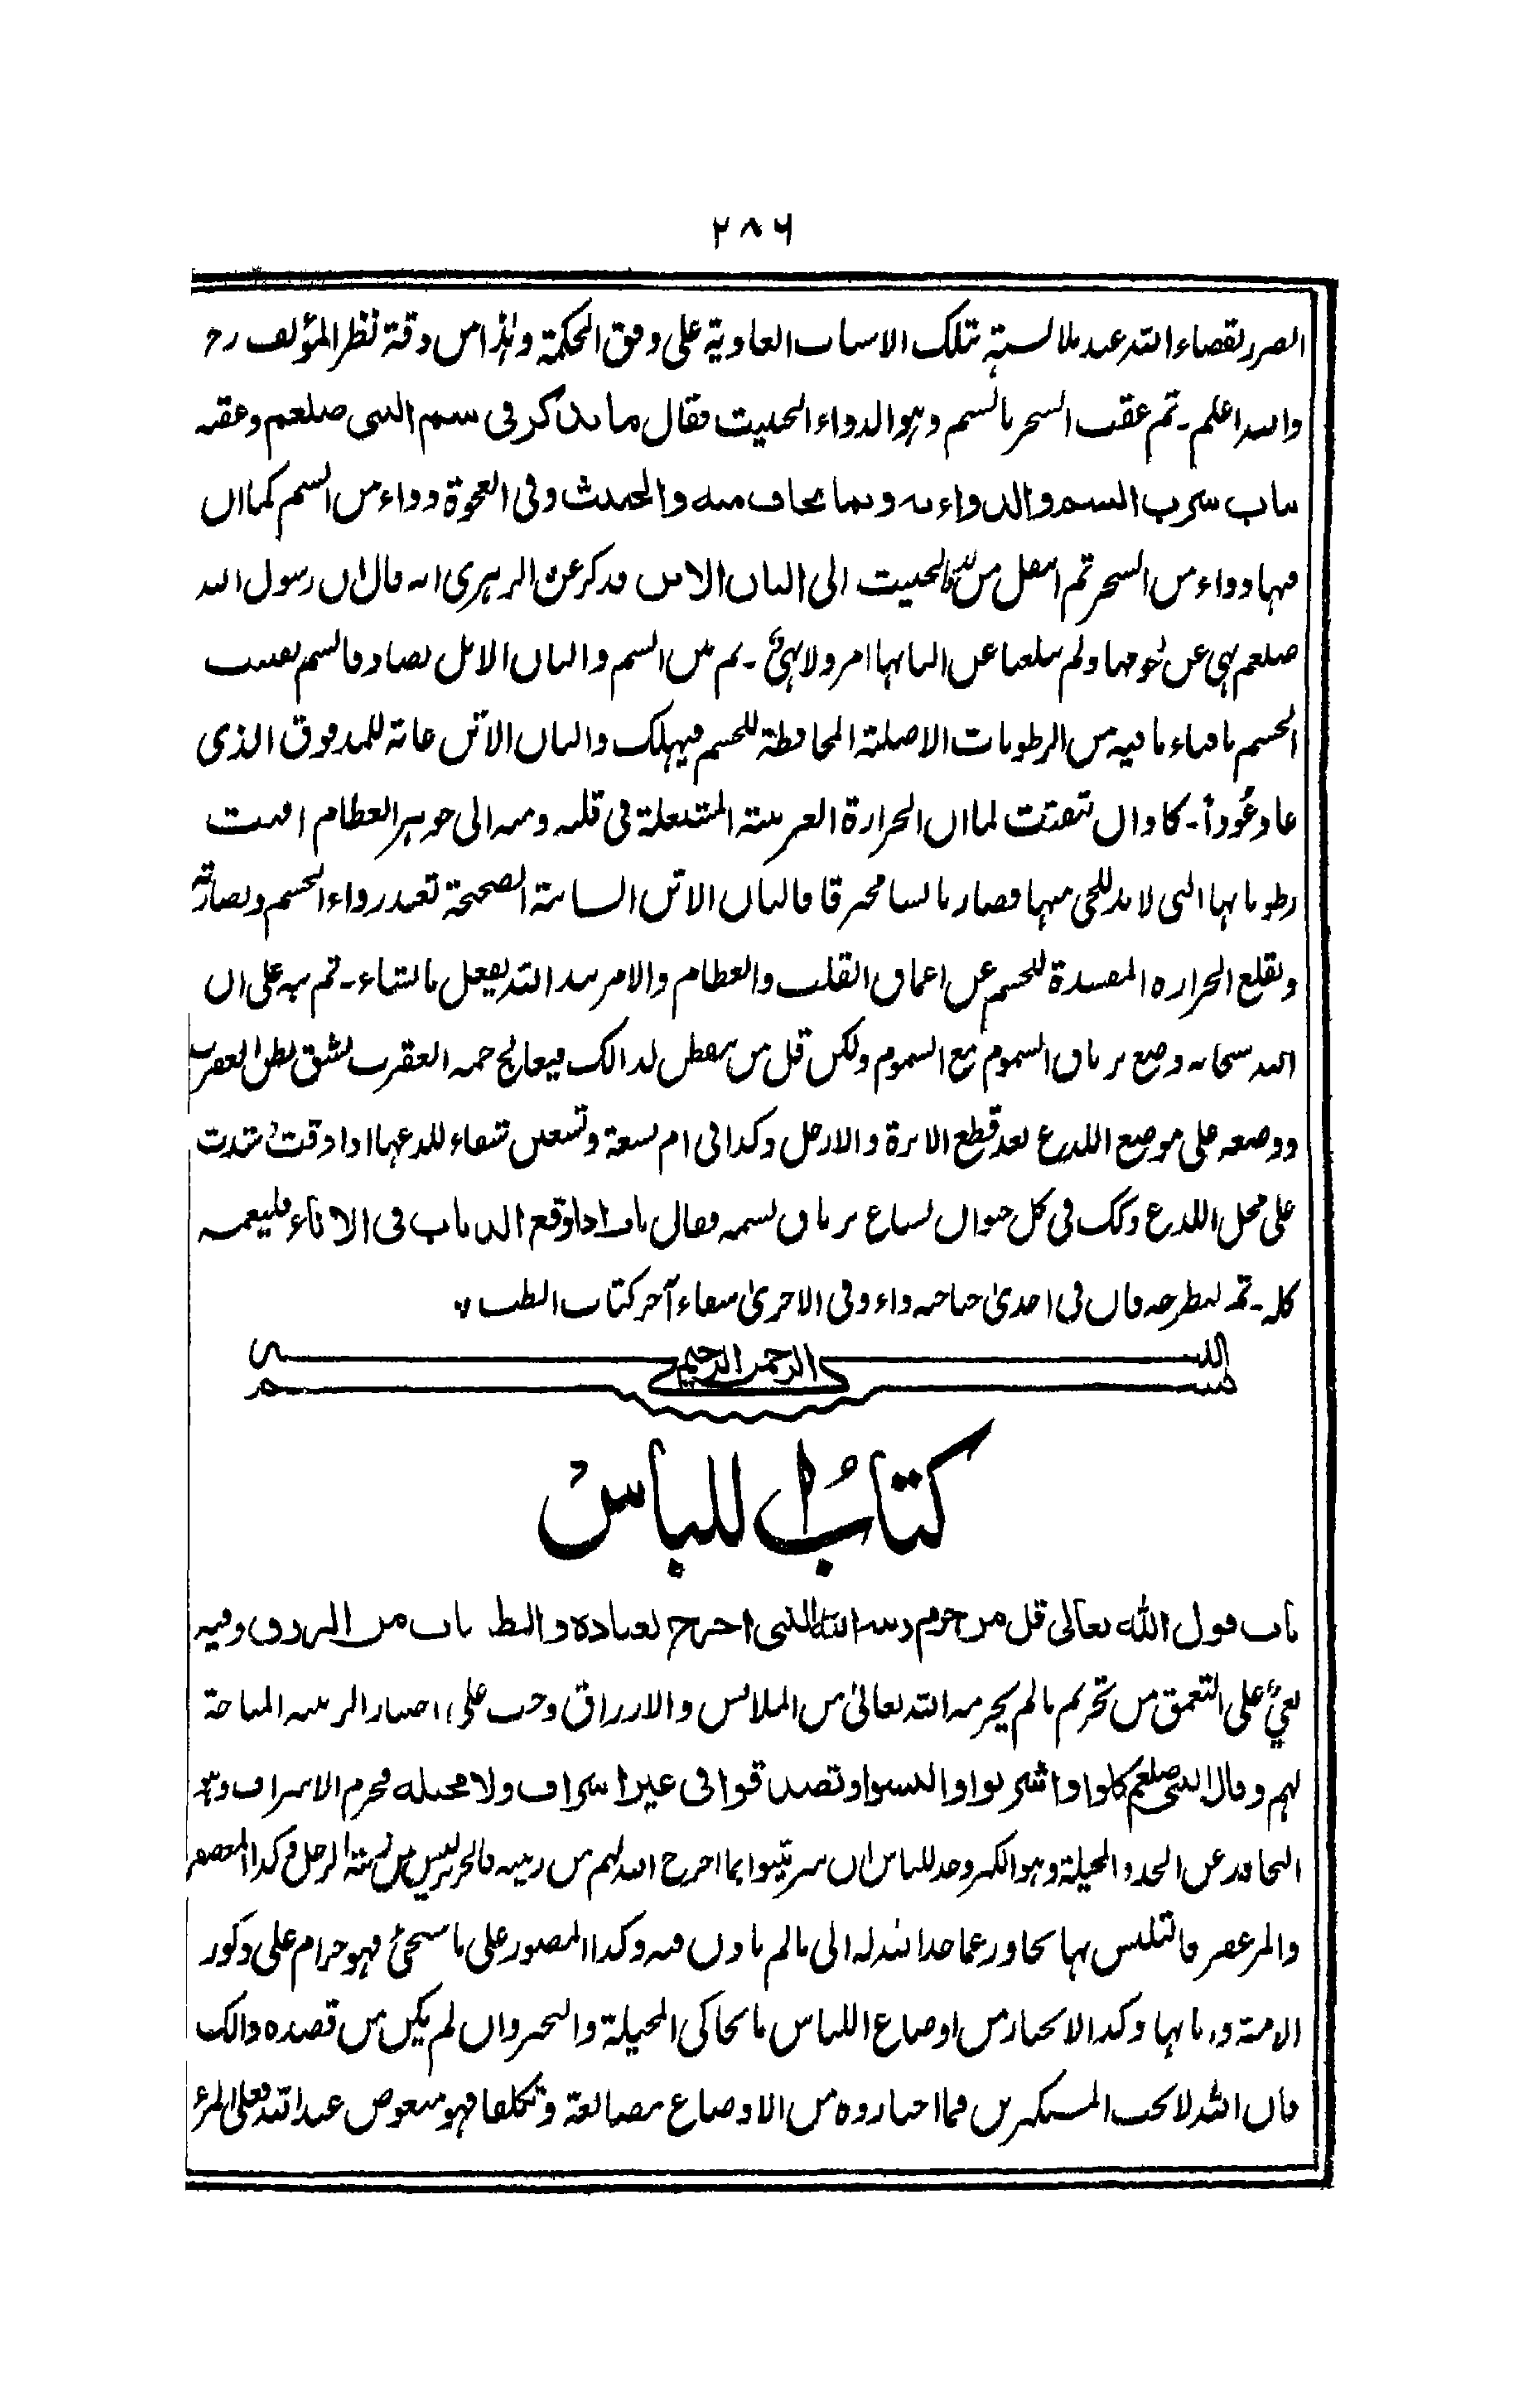 ٢٨٦
الضرر بقضاء الله عند ملابسته تلك الاسباب العادية على وفق الحكمة وہذا من دقة نظر المؤلف رح
والله اعلم۔ ثم عقب السحر بالسم وہو الدواء الخبيث فقال ما يذكر فى سم النبى صلعم وعقبه
باب شرب السم والدواء به وبما يخاف منه والخبيث وفى العجوة دواء من السم كما ان
فيها دواء من السحر ثم انتقل من الخبيث الى البان الاتن فذكر عن الزہرى انه قال ان رسول الله
صلعم نہى عن لحومها ولم يبلغنا عن البانہا امر ولا نہى۔ ثم بين السم والبان الاتن تضاد فالسم يفتت
الجسم بافناء ما فيه من الرطوبات الاصلية المحافظة للجسم فيہلك والبان الاتن غاية للمدقوق الذى
عاد عُوداً۔ كاد ان تتفتت لما ان الحرارة الغريبة المشتعلة فى قلبه ومنه الى جوہر العظام افنت
رطوباتہا التى لا بد للحى منہا فصار يابسا محترقا فالبان الاتن السائبة الصحيحة تعيد رواء الجسم ونضارته
وتقلع الحراره المفسدة للجسم عن اعماق القلب والعظام والامر بيد الله يفعل ما يشاء۔ ثم نبه على ان
الله سبحانه وضع ترياق السموم مع السموم ولكن قل من يتفطن لذالك فيعالج حمة العقرب بشق بطن العقرب
ووضعه على موضع اللدغ بعد قطع الابرة والارجل وكذا فى ام سبعة وتسعين شفاء للدغہا اذا دقت وشدت
على محل اللدغ وكك فى كل حيوان لساع ترياق لسمه فقال باب اذا وقع الذباب فى الاناء فليغمسه
كله۔ ثم ليطرحه فان فى احدىٰ جناحيه داء وفى الاخرىٰ شفاء آخر كتاب الطب
بسم الله الرحمن الرحيم
كتابُ اللباس
باب قول الله تعالى قل من حرم زينة الله التى اخرج لعباده والطيبات من الرزق وفيه
نعىٌ على التعمق من تحريم ما لم يحرمه الله تعالىٰ من الملابس والارزاق وحث على اختيار الزينة المباحة
لہم وقال النبى صلعم كلوا واشربوا والبسوا وتصدقوا فى غير اسراف ولا مخيلة فحرم الاسراف وہو
التجاوز عن الحد والمخيلة وہو الكبر وحد للناس ان يتزينوا بما اخرج الله لہم من زينته فالحرير ليس من زينة الرجل وكذا المعصفر
والمزعفر فالتلبس بہا تجاوز عما حد الله له الى ما لم ياذن فيه وكذا المصور على ما سيجئ فہو حرام على ذكور
الامة واناثہا وكذا لا يختار من اوضاع اللباس ما يحاكى المخيلة والتجبر وان لم يكن من قصده ذالك
فان الله لا يحب المتكبرين فما اختاروه من الاوضاع مصانعة وتكلفا فہو مبغوض عند الله فعلى المرء